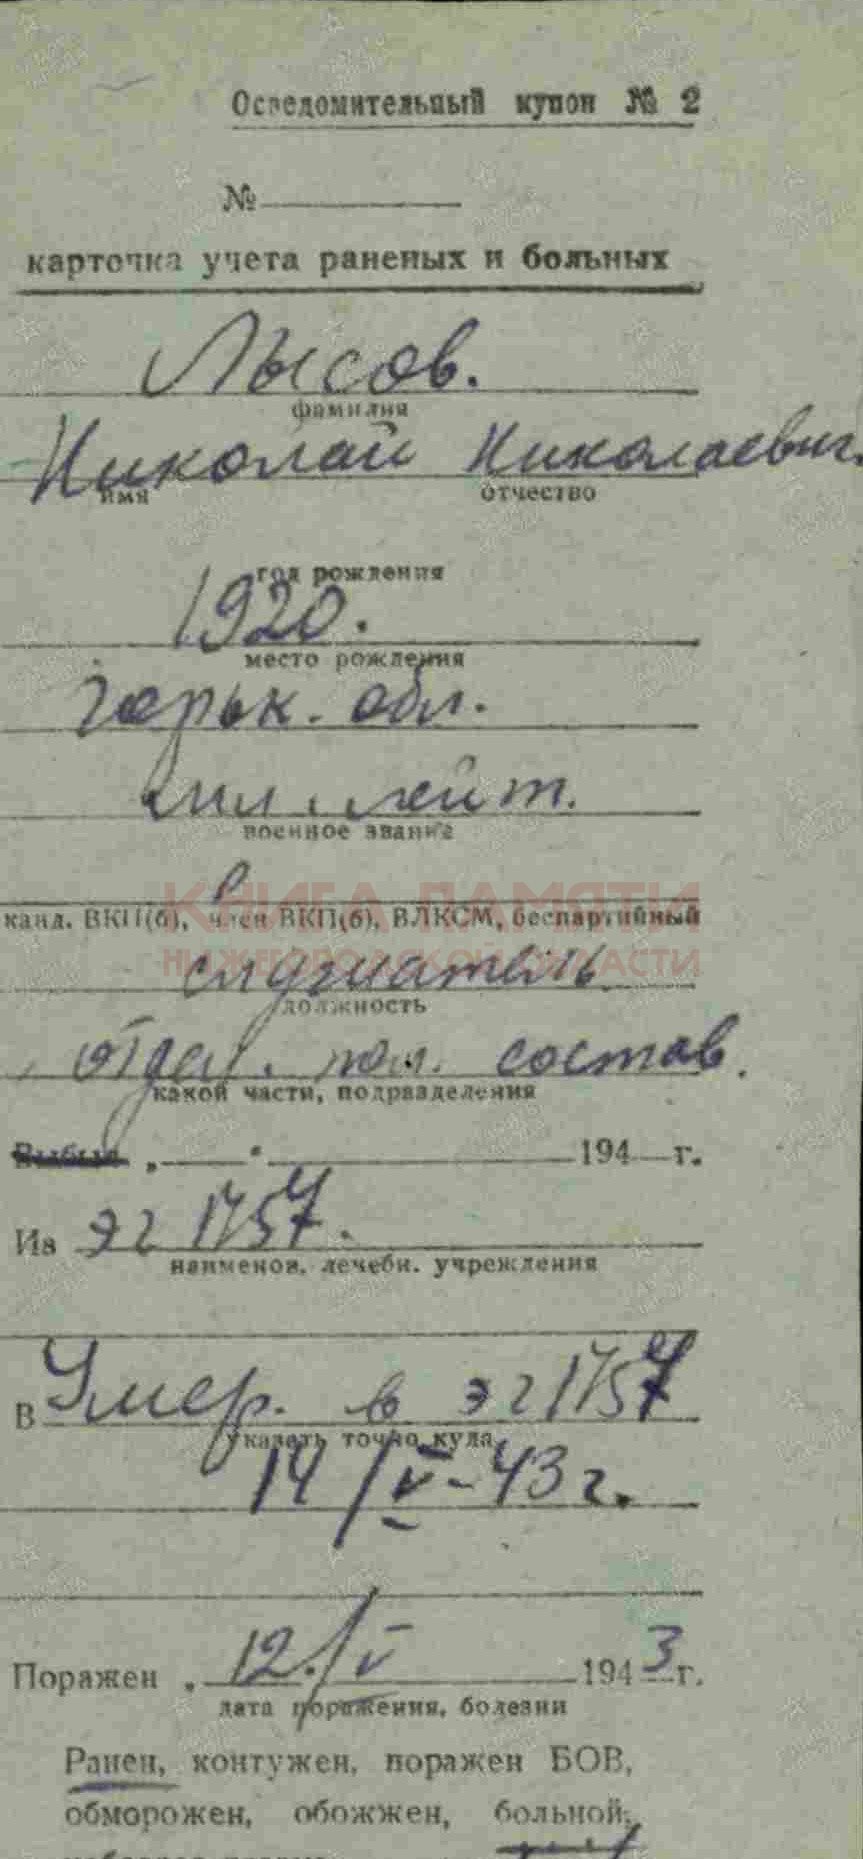 Осведомительный купон № 2
№
карточка учета раненых и больных
Лысов.
фамилия
Николай Николаевич.
имя отчество
год рождения
1920.
место рождения
Горьк. обл.
мл. лейт.
военное звание
канд. ВКП(б), член ВКП(б), ВЛКСМ, беспартийный
КНИГА ПАМЯТИ
НИЖЕГОРОДСКОЙ ОБЛАСТИ
слушатель
должность
отдел. пол. состав.
какой части, подразделения
Выбыл „ “ 194 г.
Из эг 1757.
наименов. лечебн. учреждения
В Умер. в эг 1757
указать точно куда
14/V-43 г.
Поражен „ 12./V 1943 г.
дата поражения, болезни
Ранен, контужен, поражен БОВ,
обморожен, обожжен, больной,